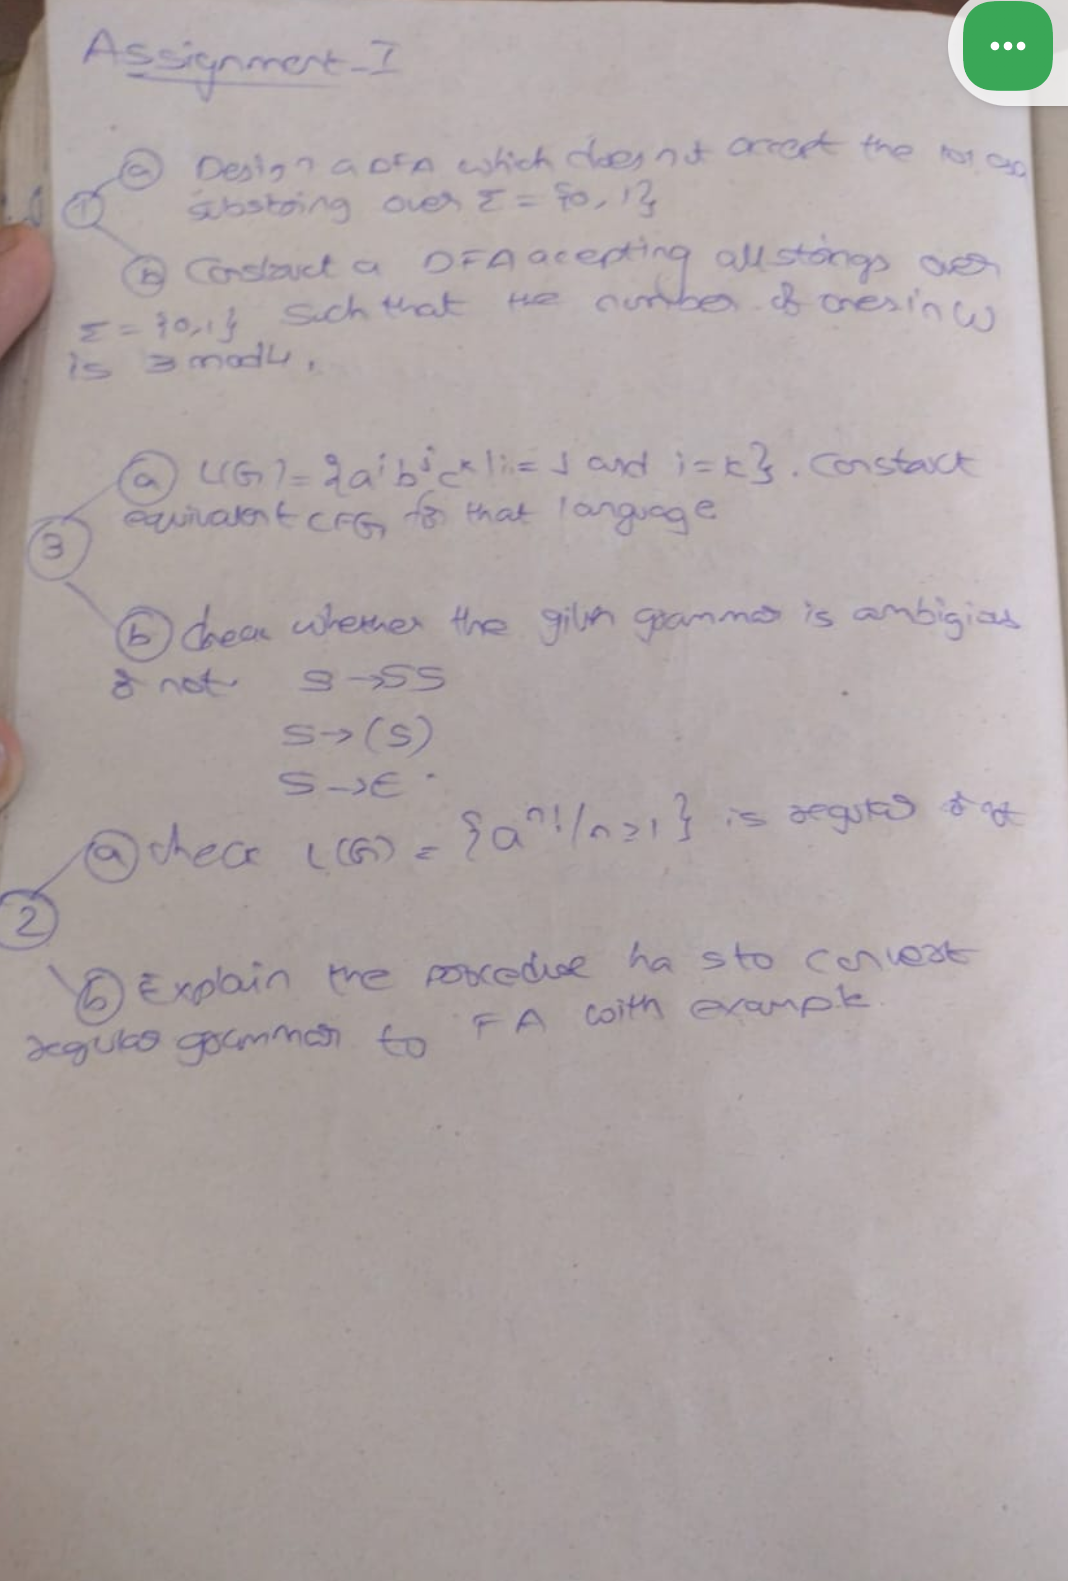 Assignment-I
① ⓐ Design a DFA which does not accept the 101 as a
substring over Σ = {0, 1}
ⓑ Construct a DFA accepting all strings over
Σ = {0,1} such that the number of ones in ω
is 3 mod 4.
③ ⓐ L(G) = {aⁱbʲcᵏ | i = j and i = k}. Construct
equivalent CFG for that language
ⓑ check whether the given grammar is ambigious
or not S → SS
S → (S)
S → ε
② ⓐ check L(G) = {aⁿ! / n ≥ 1} is regular or not
ⓑ Explain the procedure has to convert
regular grammar to FA with example.